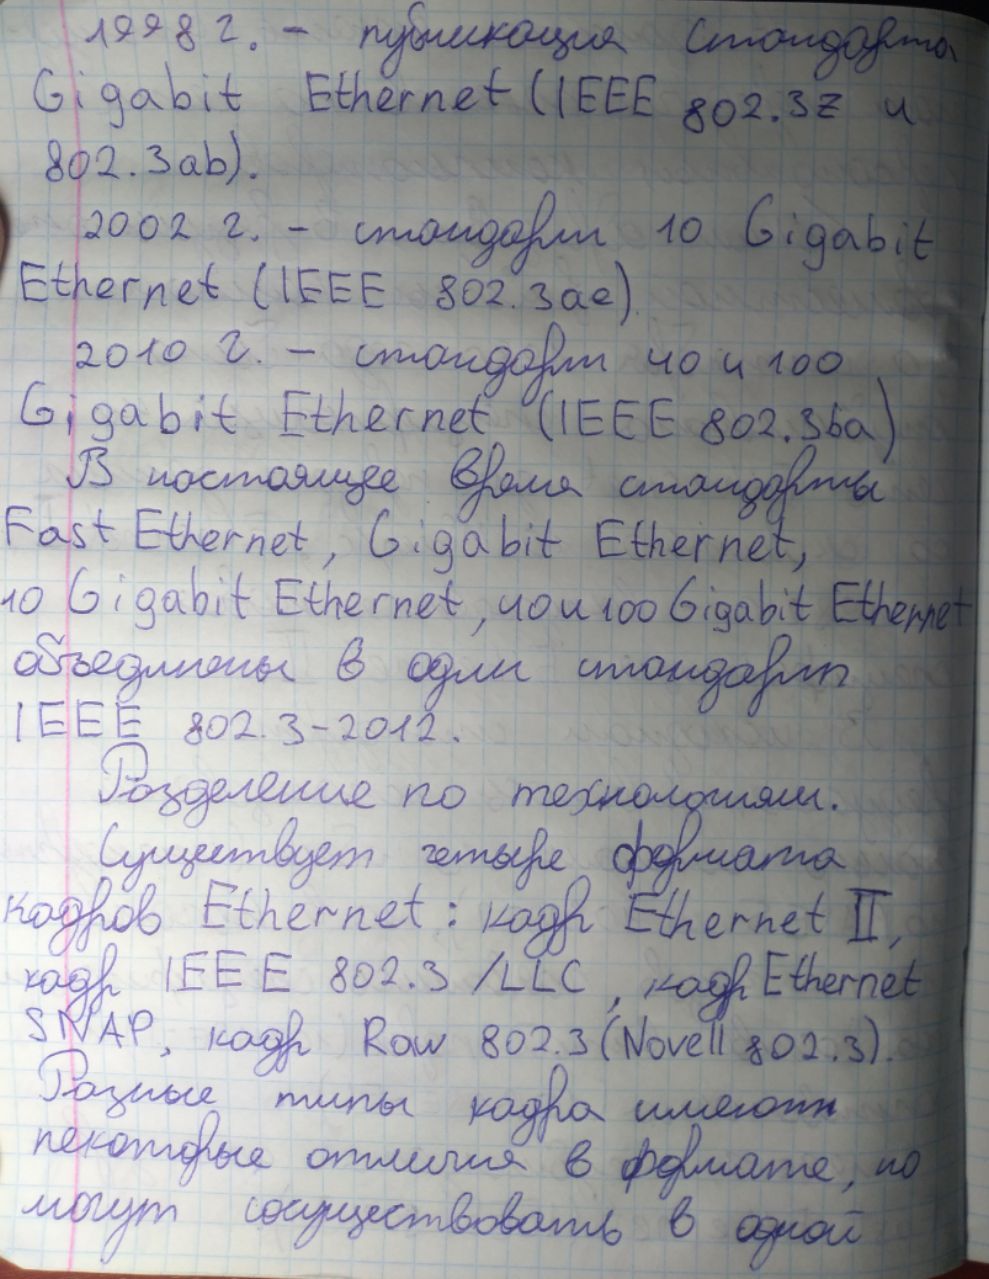 1998 г. – публикация стандарта
Gigabit Ethernet (IEEE 802.3z и
802.3ab).
2002 г. – стандарт 10 Gigabit
Ethernet (IEEE 802.3ae)
2010 г. – стандарт 40 и 100
Gigabit Ethernet (IEEE 802.3ba)
В настоящее время стандарты
Fast Ethernet, Gigabit Ethernet,
10 Gigabit Ethernet, 40 и 100 Gigabit Ethernet
объединены в один стандарт
IEEE 802.3-2012.
Разделение по технологиям.
Существует четыре формата
кадров Ethernet: кадр Ethernet II,
кадр IEEE 802.3/LLC, кадр Ethernet
SNAP, кадр Raw 802.3 (Novell 802.3).
Разные типы кадра имеют
некоторые отличия в формате, но
могут сосуществовать в одной